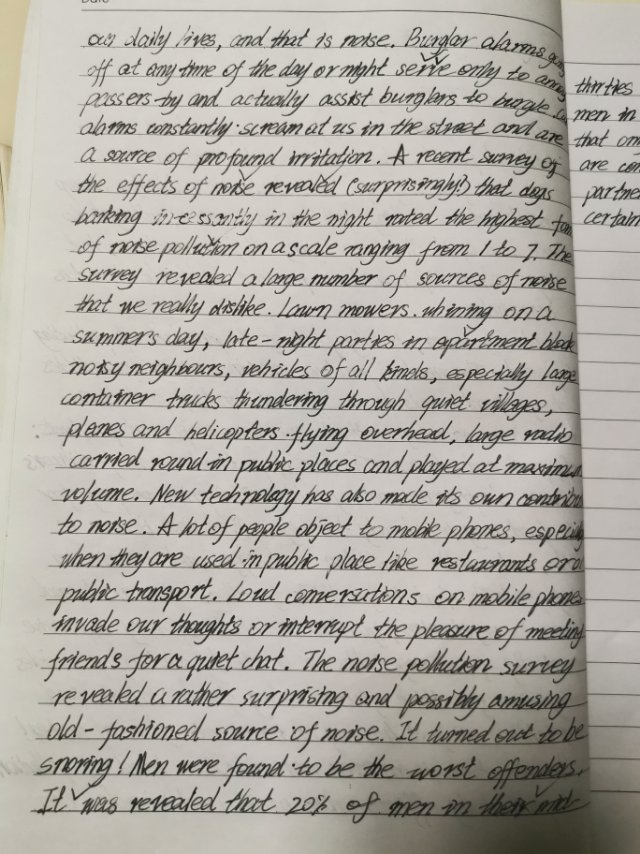 our daily lives, and that is noise. Burglar alarms going
off at any time of the day or night serve only to annoy
passers-by and actually assist burglars to burgle. Car
alarms constantly scream at us in the street and are
a source of profound irritation. A recent survey of
the effects of noise revealed (surprisingly!) that dogs
barking incessantly in the night rated the highest form
of noise pollution on a scale ranging from 1 to 7. The
survey revealed a large number of sources of noise
that we really dislike. Lawn mowers whining on a
summer's day, late-night parties in apartment block
noisy neighbours, vehicles of all kinds, especially large
container trucks thundering through quiet villages,
planes and helicopters flying overhead, large radio
carried round in public places and played at maximum
volume. New technology has also made its own contribu
to noise. A lot of people object to mobile phones, especially
when they are used in public place like restaurants or
public transport. Loud conversations on mobile phones
invade our thoughts or interrupt the pleasure of meeting
friends for a quiet chat. The noise pollution survey
revealed a rather surprising and possibly amusing
old-fashioned source of noise. It turned out to be
snoring! Men were found to be the worst offenders.
It was revealed that 20% of men in their mid-
thirties
men in
that
are
partne
certain